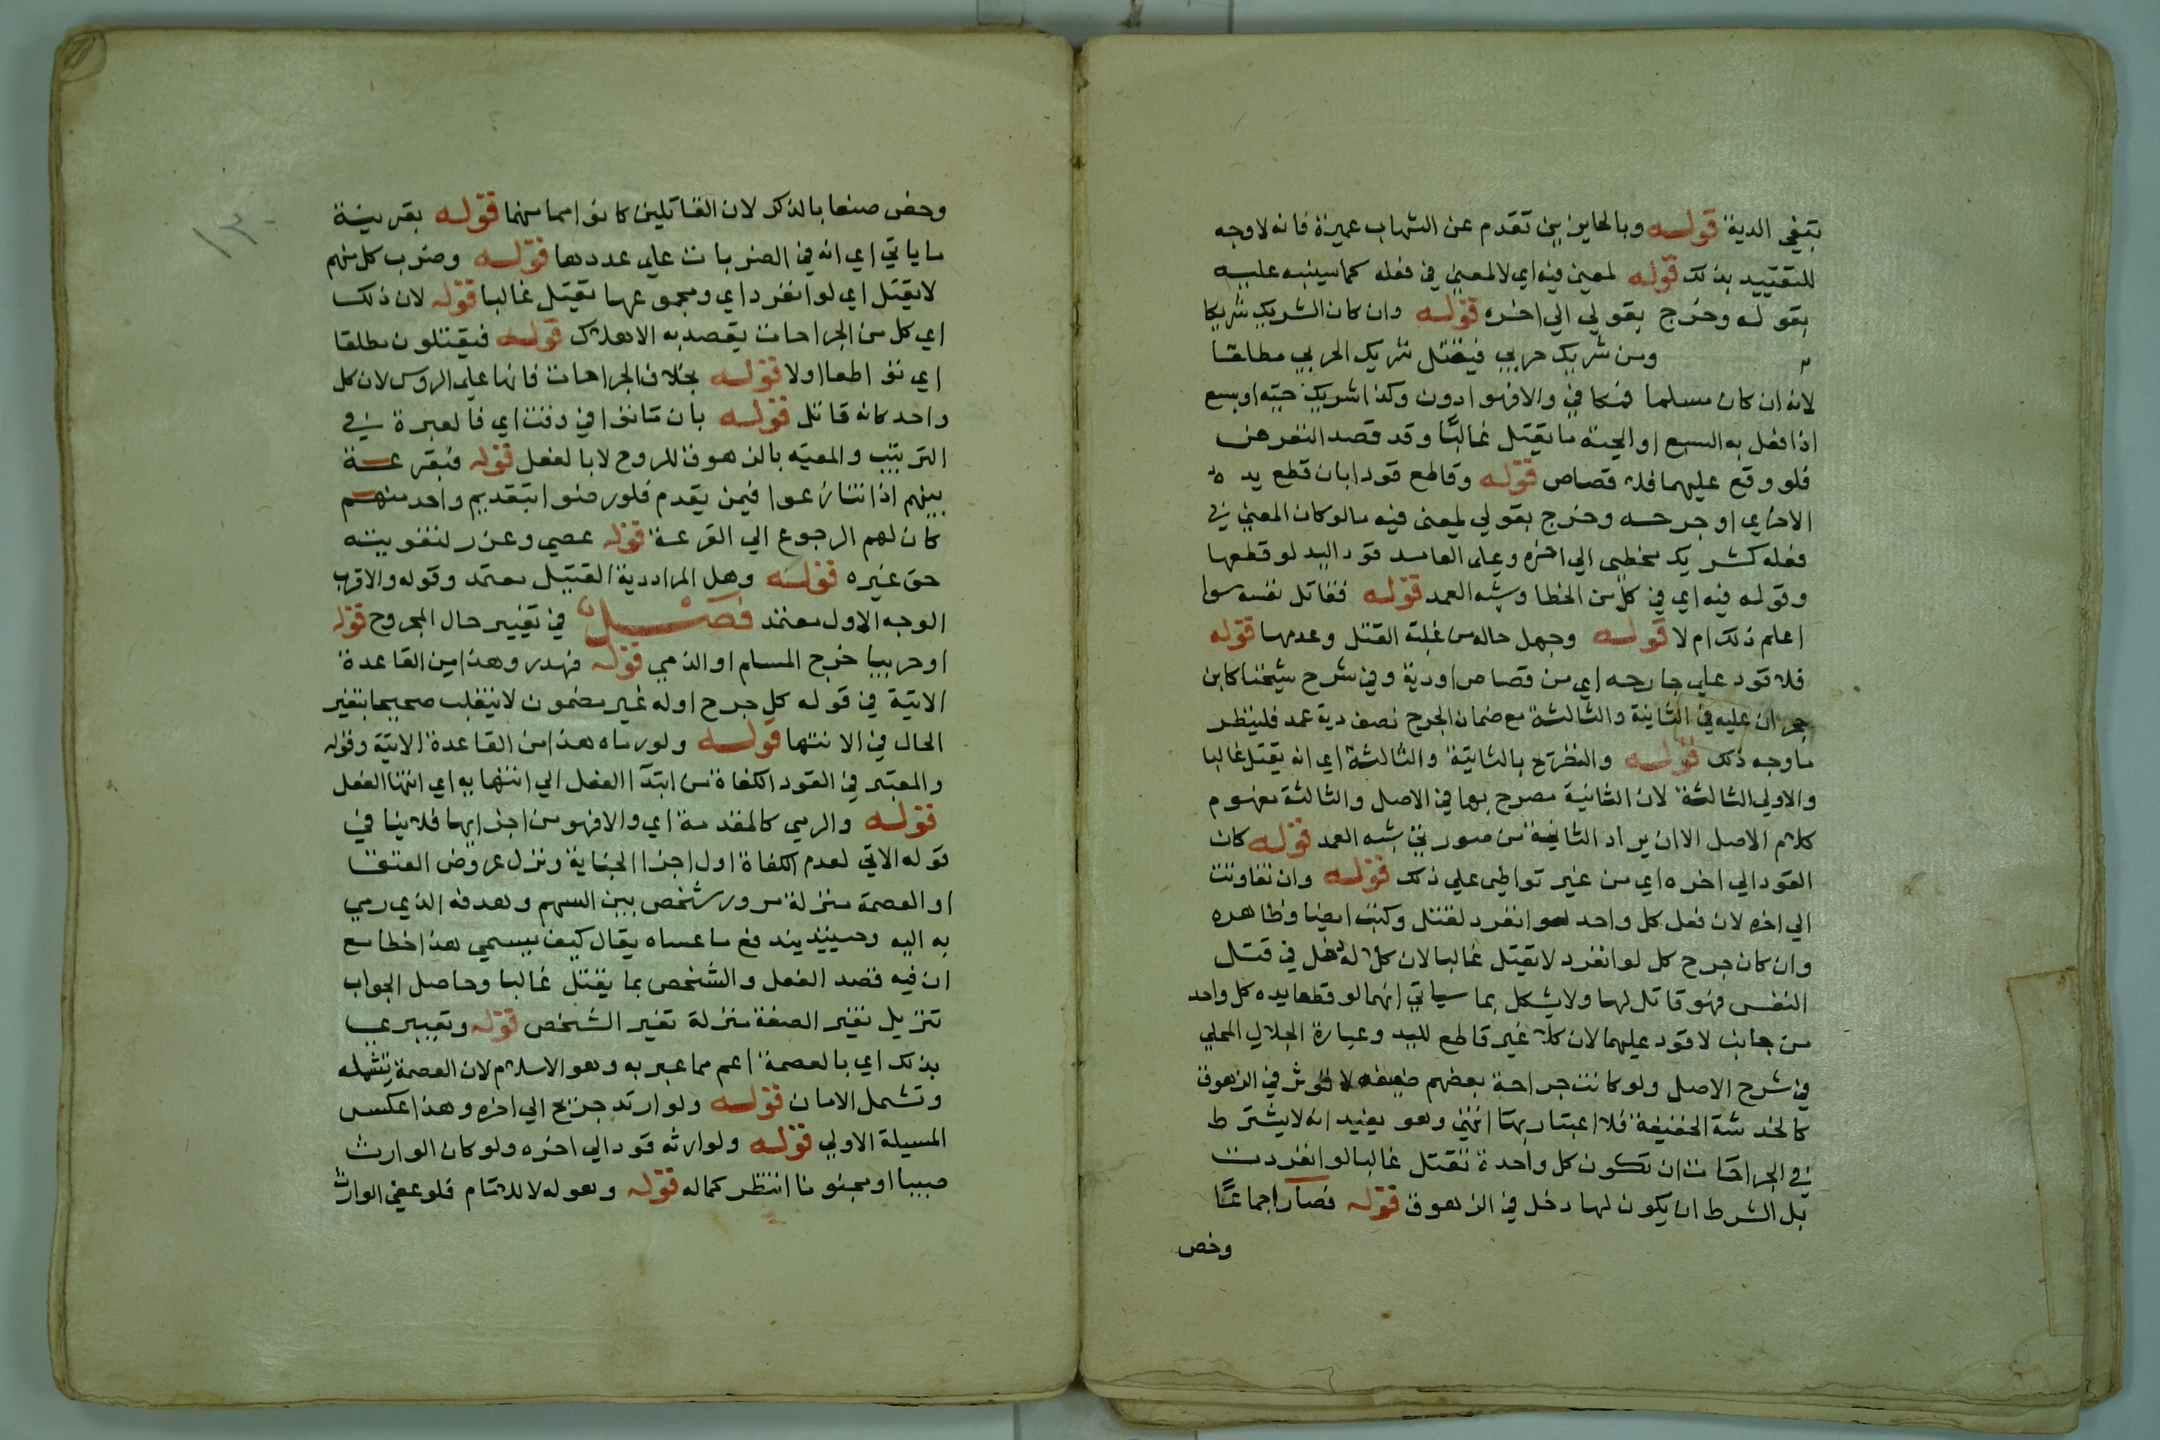 بتغي الدية قوله وبالحايز بين تقدم عن الشهاب عميرة فانه لا وجه
للتقييد بذلك قوله لمعين فيه اي لالمعني في فعله كما سينبه عليه
بقوله وخرج بقولي الي اخره قوله وان كان الشريك شريكا
ومن شريك حربي فيقتل شريك الحربي مطلقا
لانه ان كان مسلما فمكافي والافهوادون وكذا شريك حيه اوسبع
اذا فعل به السبع او الحية ما يقتل غالبا وقد قصد النفرعن
فلو وقع عليهما فلا قصاص قوله وقاطع قودا بان قطع يده
الاحراي او جرحه وخرج بقولي لمعنى فيه ما لوكان المعني في
فعله كشريك مخطي الي اخره وعلي العامد قود اليد لو قطعها
وقوله فيه اي في كل من الخطا وشبه العمد قوله فقاتل نفسه سوا
اعلم ذلك ام لا قوله وجهل حاله من غلبة القتل وعدمها قوله
فلا قود علي جارحه اي من قصاص اودية وفي شرح شيخنا كابن
حجر ان عليه في الثانية والثالثة مع ضمان الجرح نصف دية عمد فلينظر
ما وجه ذلك قوله والتصريح بالثانية والثالثة اي انه يقتل غالبا
والاولي الثالثة لان الثانية مصرح بها في الاصل والثالثة مفهوم
كلام الاصل الا ان يراد الثانية من صورتي شبه العمد قوله كان
القود الي اخره اي من غير تواطي علي ذلك قوله وان تفاوتت
الي اخره لان فعل كل واحد لو انفرد لقتل وكتب ايضا وظاهره
وان كان جرح كل لو انفرد لا يقتل غالبا لان كلا له دخل في قتل
النفس فهو قاتل لها ولا يشكل بما سياتي انهما لو قطعا يده كل واحد
من جانب لا قود عليهما لان كلا غير قاطع لليد وعبارة الجلال المحلي
في شرح الاصل ولو كانت جراحة بعضهم ضعيفه لا تؤثر في الزهوق
كالخدشة الخفيفة فلا اعتبار بها انتهي وهو يفيد انه لا يشترط
في الجراحات ان تكون كل واحدة تقتل غالبا لو انفردت
بل الشرط ان يكون لها دخل في الزهوق قوله فصار اجماعا
وخص
وخص صنعا بالذكر لان القاتلين كانوا منها قوله بقرينة
ما ياتي اي انه في الضربات علي عددها قوله وضرب كل منهم
لا يقتل اي لو انفرد اي ومجموعها يقتل غالبا قوله لان ذلك
اي كل من الجراحات يقصد به الاهلاك قوله فيقتلون مطلقا
اي تواطعا اولا قوله بخلاف الجراحات فانها علي الروس لان كل
واحد كانه قاتل قوله بان ماتوا في وقت اي فالعبرة في
الترتيب والمعيه بالزهوق للروح لا بالفعل قوله فبقرعة
بينهم اذا تنازعوا فيمن يقدم فلو رضوا بتقديم واحد منهم
كان لهم الرجوع الي القرعة قوله عصي وعزر لتفويته
حق غيره قوله وهل المراد دية القتيل معتمد وقوله والاقرب
الوجه الاول معتمد فصل في تغيير حال المجروح قوله
او حربيا خرج المسلم او الذمي قوله فهدر وهذا من القاعدة
الاتية في قوله كل جرح اوله غير مضمون لا ينقلب صحيحا بتغير
الحال في الانتها قوله ولو رماه هذا من القاعدة الاتية وقوله
والمعتبر في القود الكفاة من ابتدا الفعل الي انتهايه اي انتها الفعل
قوله والرمي كالمقدمة اي والافهو من اجزايها فلا ينافي
قوله الاتي لعدم الكفاة اول اجزا الجناية ونزل عروض العتق
او العصمة منزلة مرور شخص بين السهم وهدفه الذي رمي
به اليه وحينيذ يندفع ما عساه يقال كيف يسمي هذا خطا مع
ان فيه قصد الفعل والشخص بما يقتل غالبا وحاصل الجواب
تنزيل تغير الصفة منزلة تغير الشخص قوله وتعبيري
بذلك اي بالعصمة اعم مما عبر به وهو الاسلام لان العصمة تشمله
وتشمل الامان قوله ولو ارتد جريح الي اخره وهذا عكس
المسيلة الاولي قوله ولوارثه قود الي اخره ولو كان الوارث
صبيا او مجنونا انتظر كماله قوله وهوله لا للامام فلو عفي الوارث
١٣٠